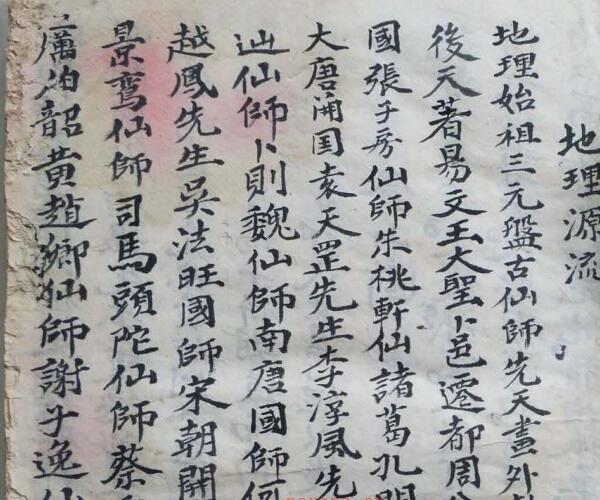 地理源流
地理始祖三元盤古仙師先天畫外
後天著易文王大聖卜邑遷都周
國張子房仙師朱桃軒仙諸葛孔明
大唐開国袁天罡先生李淳風先
仙師卜則魏仙師南唐國師何
越鳳先生吴法旺國師宋朝開
景鸞仙師司馬頭陀仙師蔡
厲伯韶黄趙鄉仙師謝子逸仙